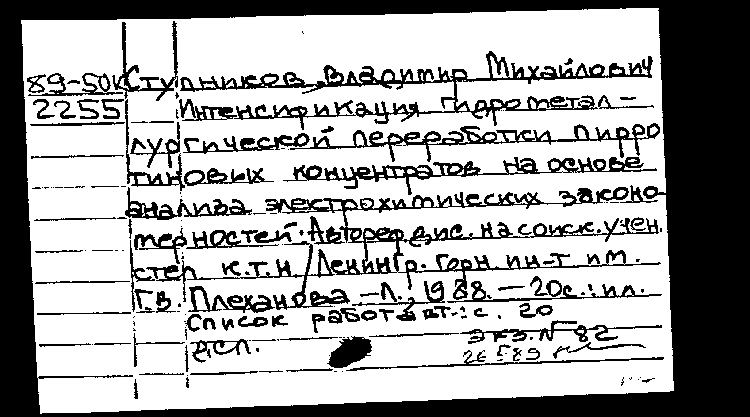 89-50к Ступников, Владимир Михайлович
2255 Интенсификация гидрометал-
лургической переработки пирро
тиновых концентратов на основе
анализа электрохимических законо-
мерностей: Автореф. дис. на соиск. учен.
степ к.т.н / Ленингр. горн. ин-т им.
Г.В. Плеханова. -Л., 1988. - 20с.: ил.
Список работ авт.: с. 20
ДСП. Экз. N 82
26589